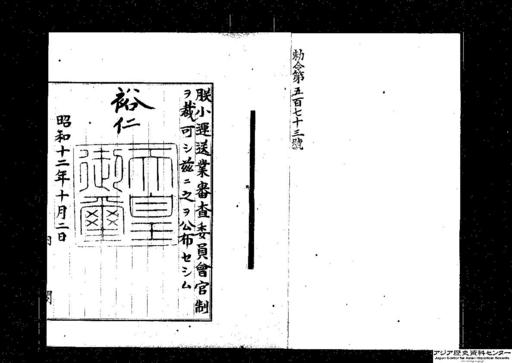 勅令第五百七十三號
朕小運送業審査委員會官制
ヲ裁可シ茲ニ之ヲ公布セシム
裕仁
天皇御璽
昭和十二年十月二日
内閣
アジア歴史資料センター
Japan Center for Asian Historical Records